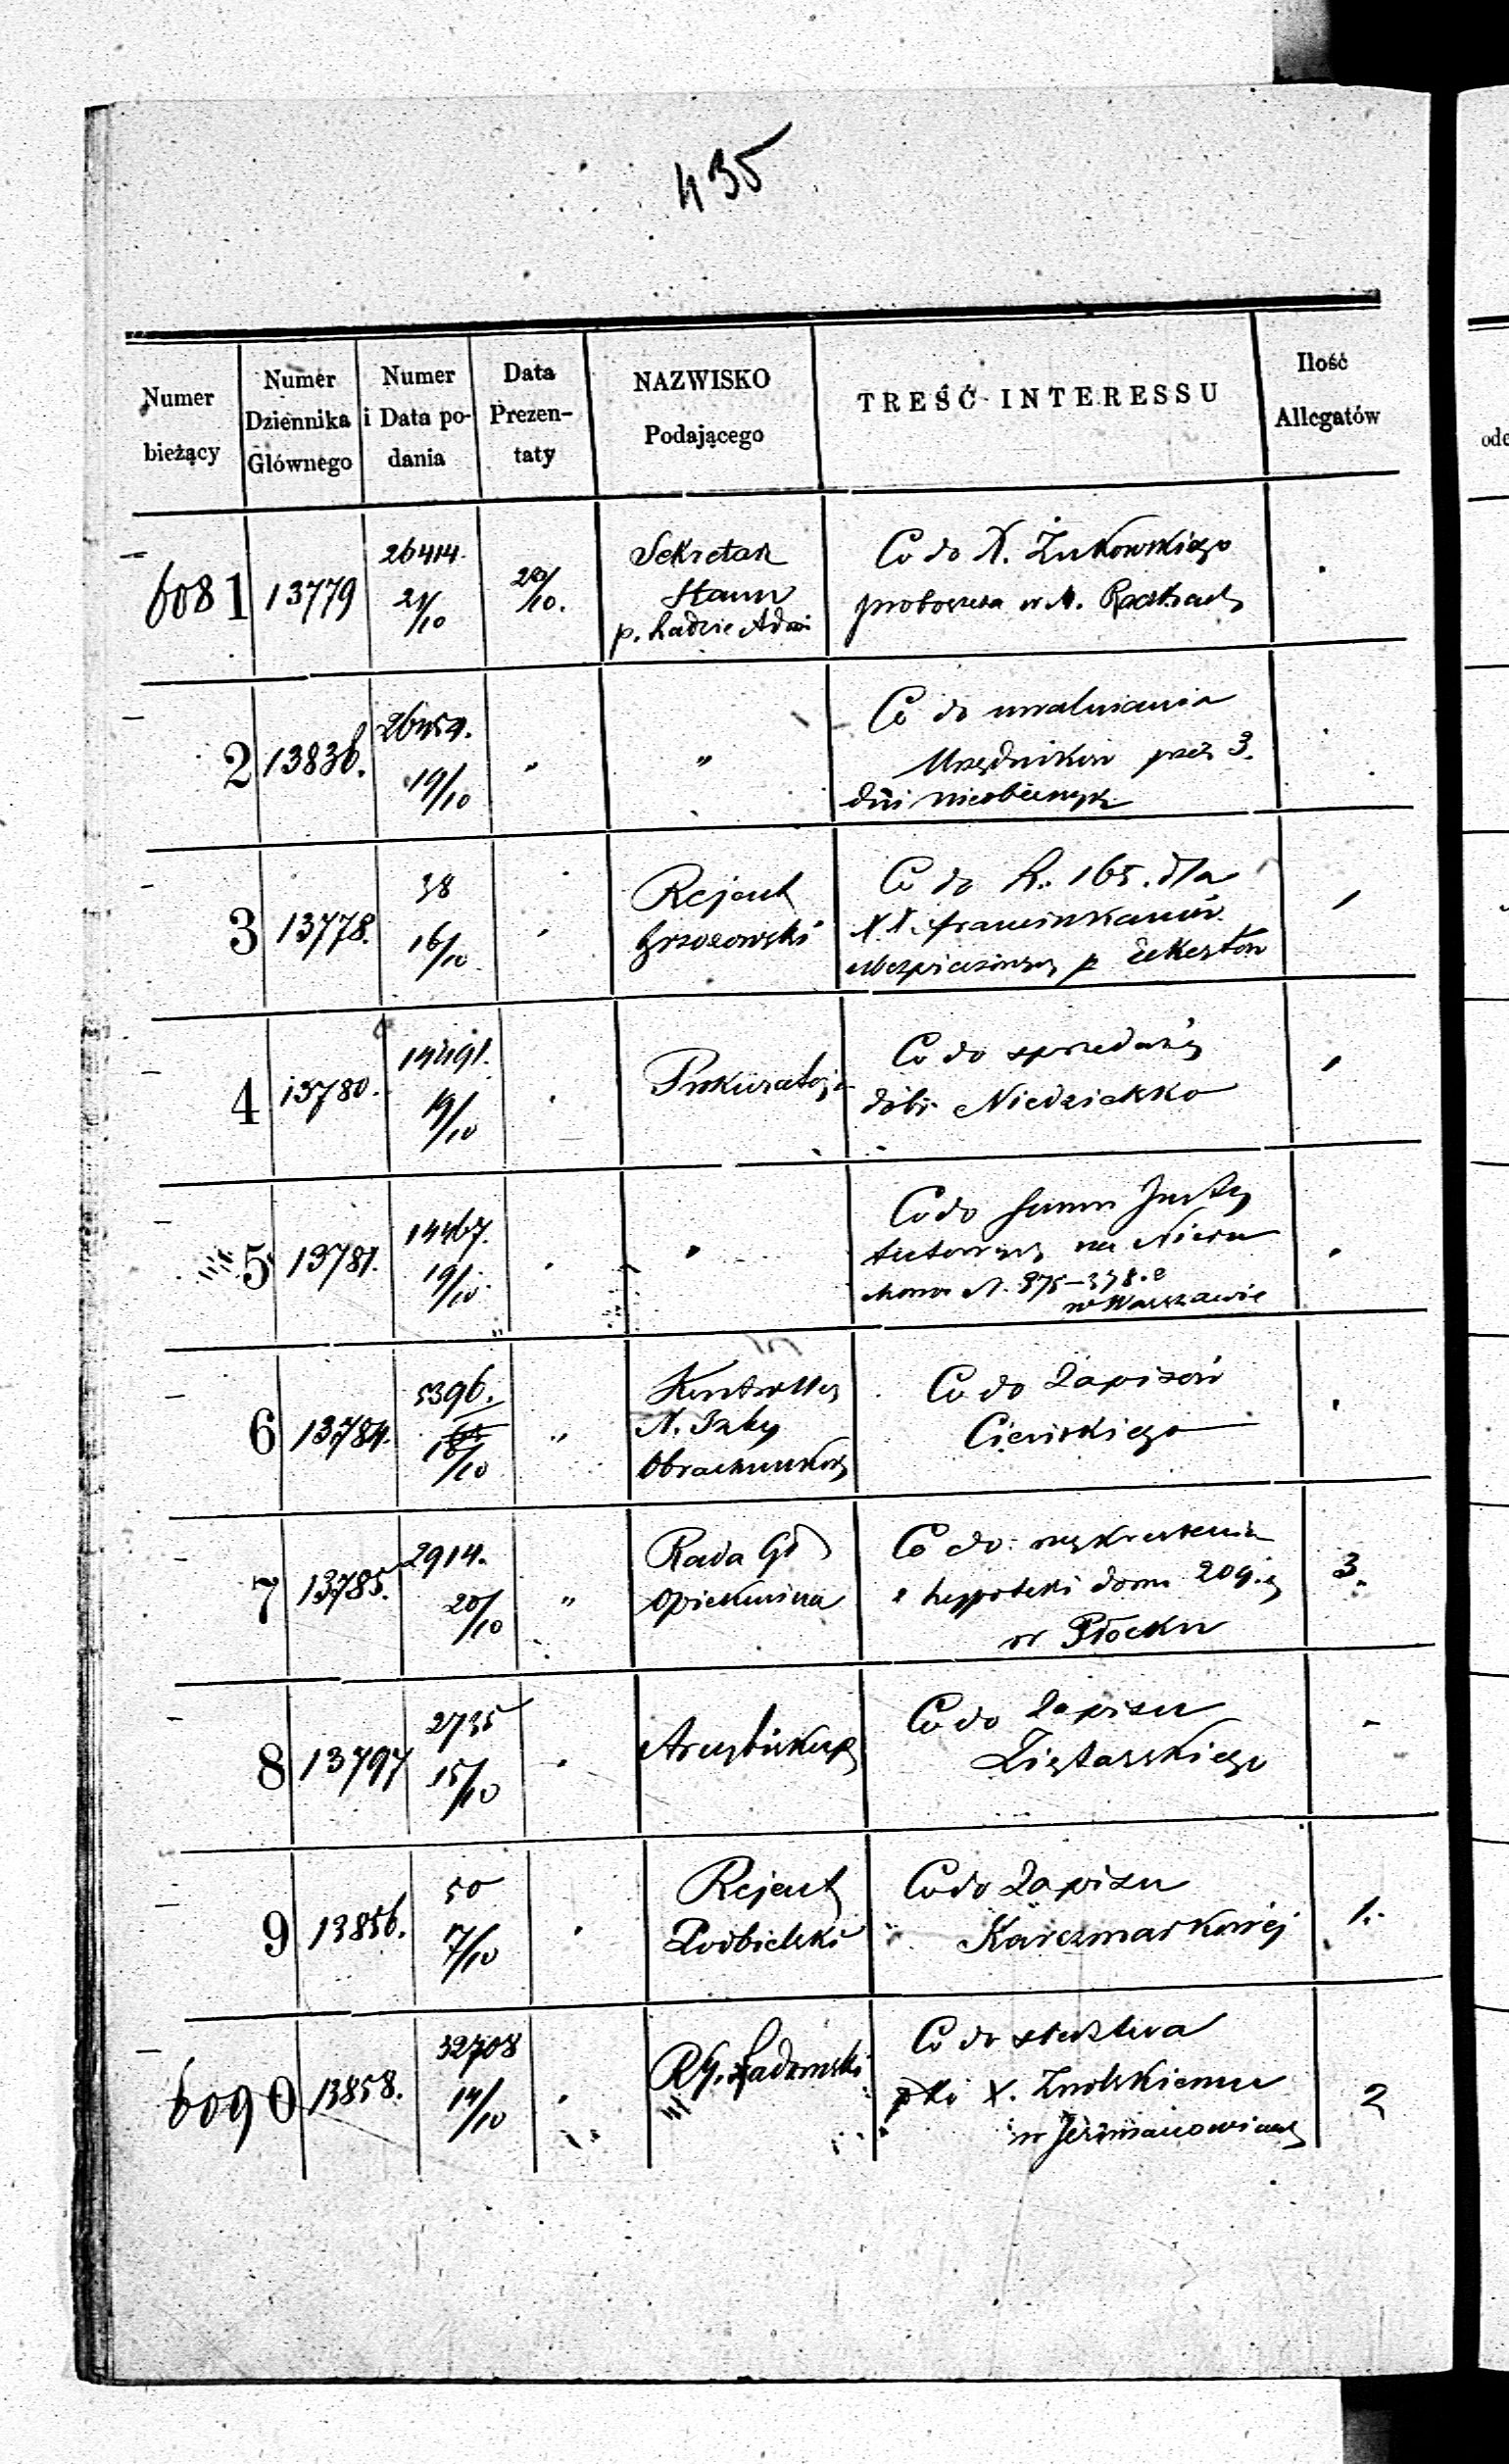 435
Numer bieżący | Numer Dziennika Głównego | Numer i Data podania | Data Prezentaty | NAZWISKO Podającego | TREŚĆ INTERESSU | Ilość Allegatów
6081 13779 26414. 21/10 20/10. Sekretarz Stanu p. Radzie Adm Co do X. Żukowskiego proboszcza w
2 13836. 26459. 19/10 " " Co do uwalniania Urzędników przez 3. dni nieobecnych
3 13778. 38 16/10 Rejent Brzozowski Co do R. 165. dla XX. Franciszkanów
4 13780. 14491. 19/10 Prokuratorja Co do sprzedaży dóbr
5 13781. 14467. 19/10 Co do summ Instytutowych na Nieru chomo N. 375-378.e w Warszawie
6 13784. 5396. 18/10 " Kontroller N. Izby Obrachunkowej Co do Zapisów Cieńskiego
7 13785. 2914. 20/10 " Rada Gł Opiekuńcza Co do wykreślenia z hypoteki domu 209. w Płocku 3.
8 13797 2735 15/10 Arcybiskup Co do Zapisu
9 13856. 50 7/10 Rejent Podbielski Co do Zapisu Karczmarkowéj 1.
6090 13858. 32708 14/10 RG. Radomski Co do śledztwa pko X. w Jerzmanowicach 2